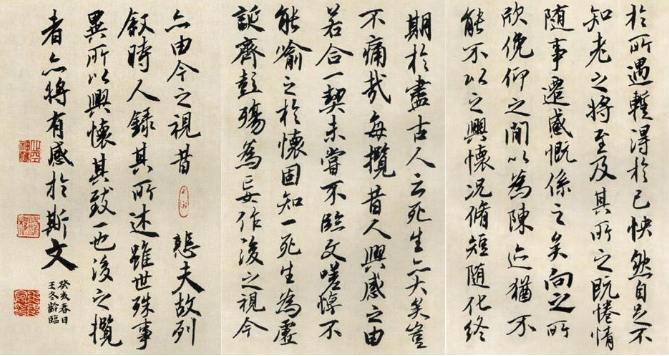 於所遇蹔得於己怏然自足不
知老之將至及其所之既惓情
隨事遷感慨係之矣向之所
欣俛仰之間以為陳迹猶不
能不以之興懷況脩短隨化終
期於盡古人云死生亦大矣豈
不痛哉每攬昔人興感之由
若合一契未嘗不臨文嗟悼不
能喻之於懷固知一死生為虛
誕齊彭殤為妄作後之視今
亦由今之視昔 悲夫故列
敘時人錄其所述雖世殊事
異所以興懷其致一也後之攬
者亦將有感於斯文
癸亥春日
王冬齡臨